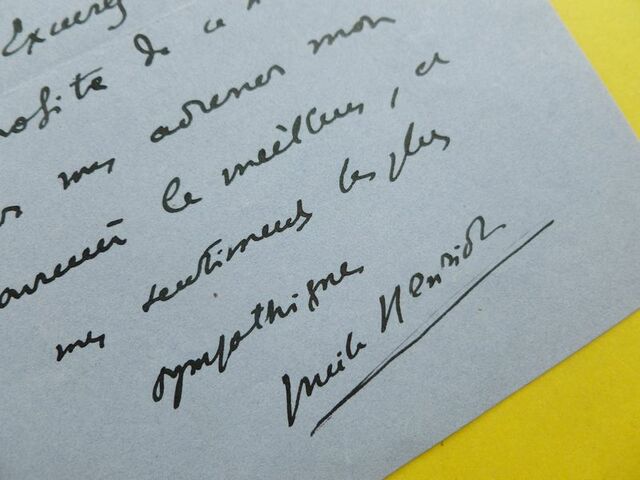 Excusez
profite de ce
mes adresser mon
souvenir le meilleur, et
mes sentiments les plus
sympathiques
Émile Henriot